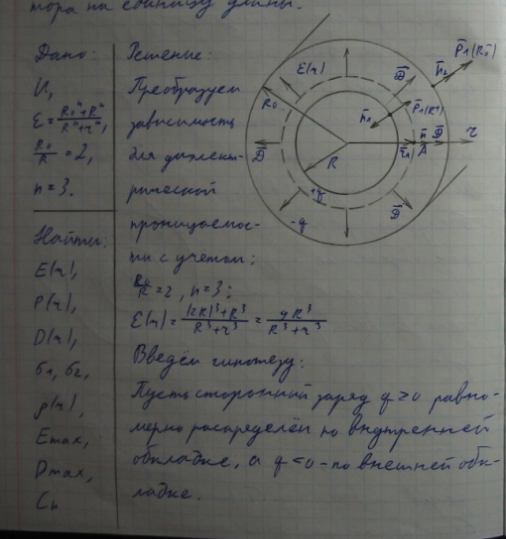 тора на единицу длины.
Дано:
U,
ε = (R₀ⁿ+Rⁿ)/(Rⁿ+rⁿ),
R₀/R = 2,
n = 3.
Найти:
E(r),
P(r),
D(r),
σ₁, σ₂,
ρ(r),
Emax,
Dmax,
Решение:
Преобразуем
зависимость
для диэлект-
рической
проницаемос-
ти с учётом:
R₀/R = 2, n = 3:
ε(r) = ((2R)³+R³)/(R³+r³) = 9R³/(R³+r³)
Введём гипотезу:
Пусть сторонний заряд q>0 равно-
мерно распределён по внутренней
обкладке, а q<0 - по внешней обк-
ладке.
ε(r)
D
n₂
P₁(R₀)
R₀
n₁
P₁(R)
D
R
n D
A
r
+q
-q
D